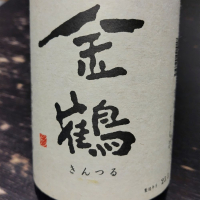 金鶴
きんつる